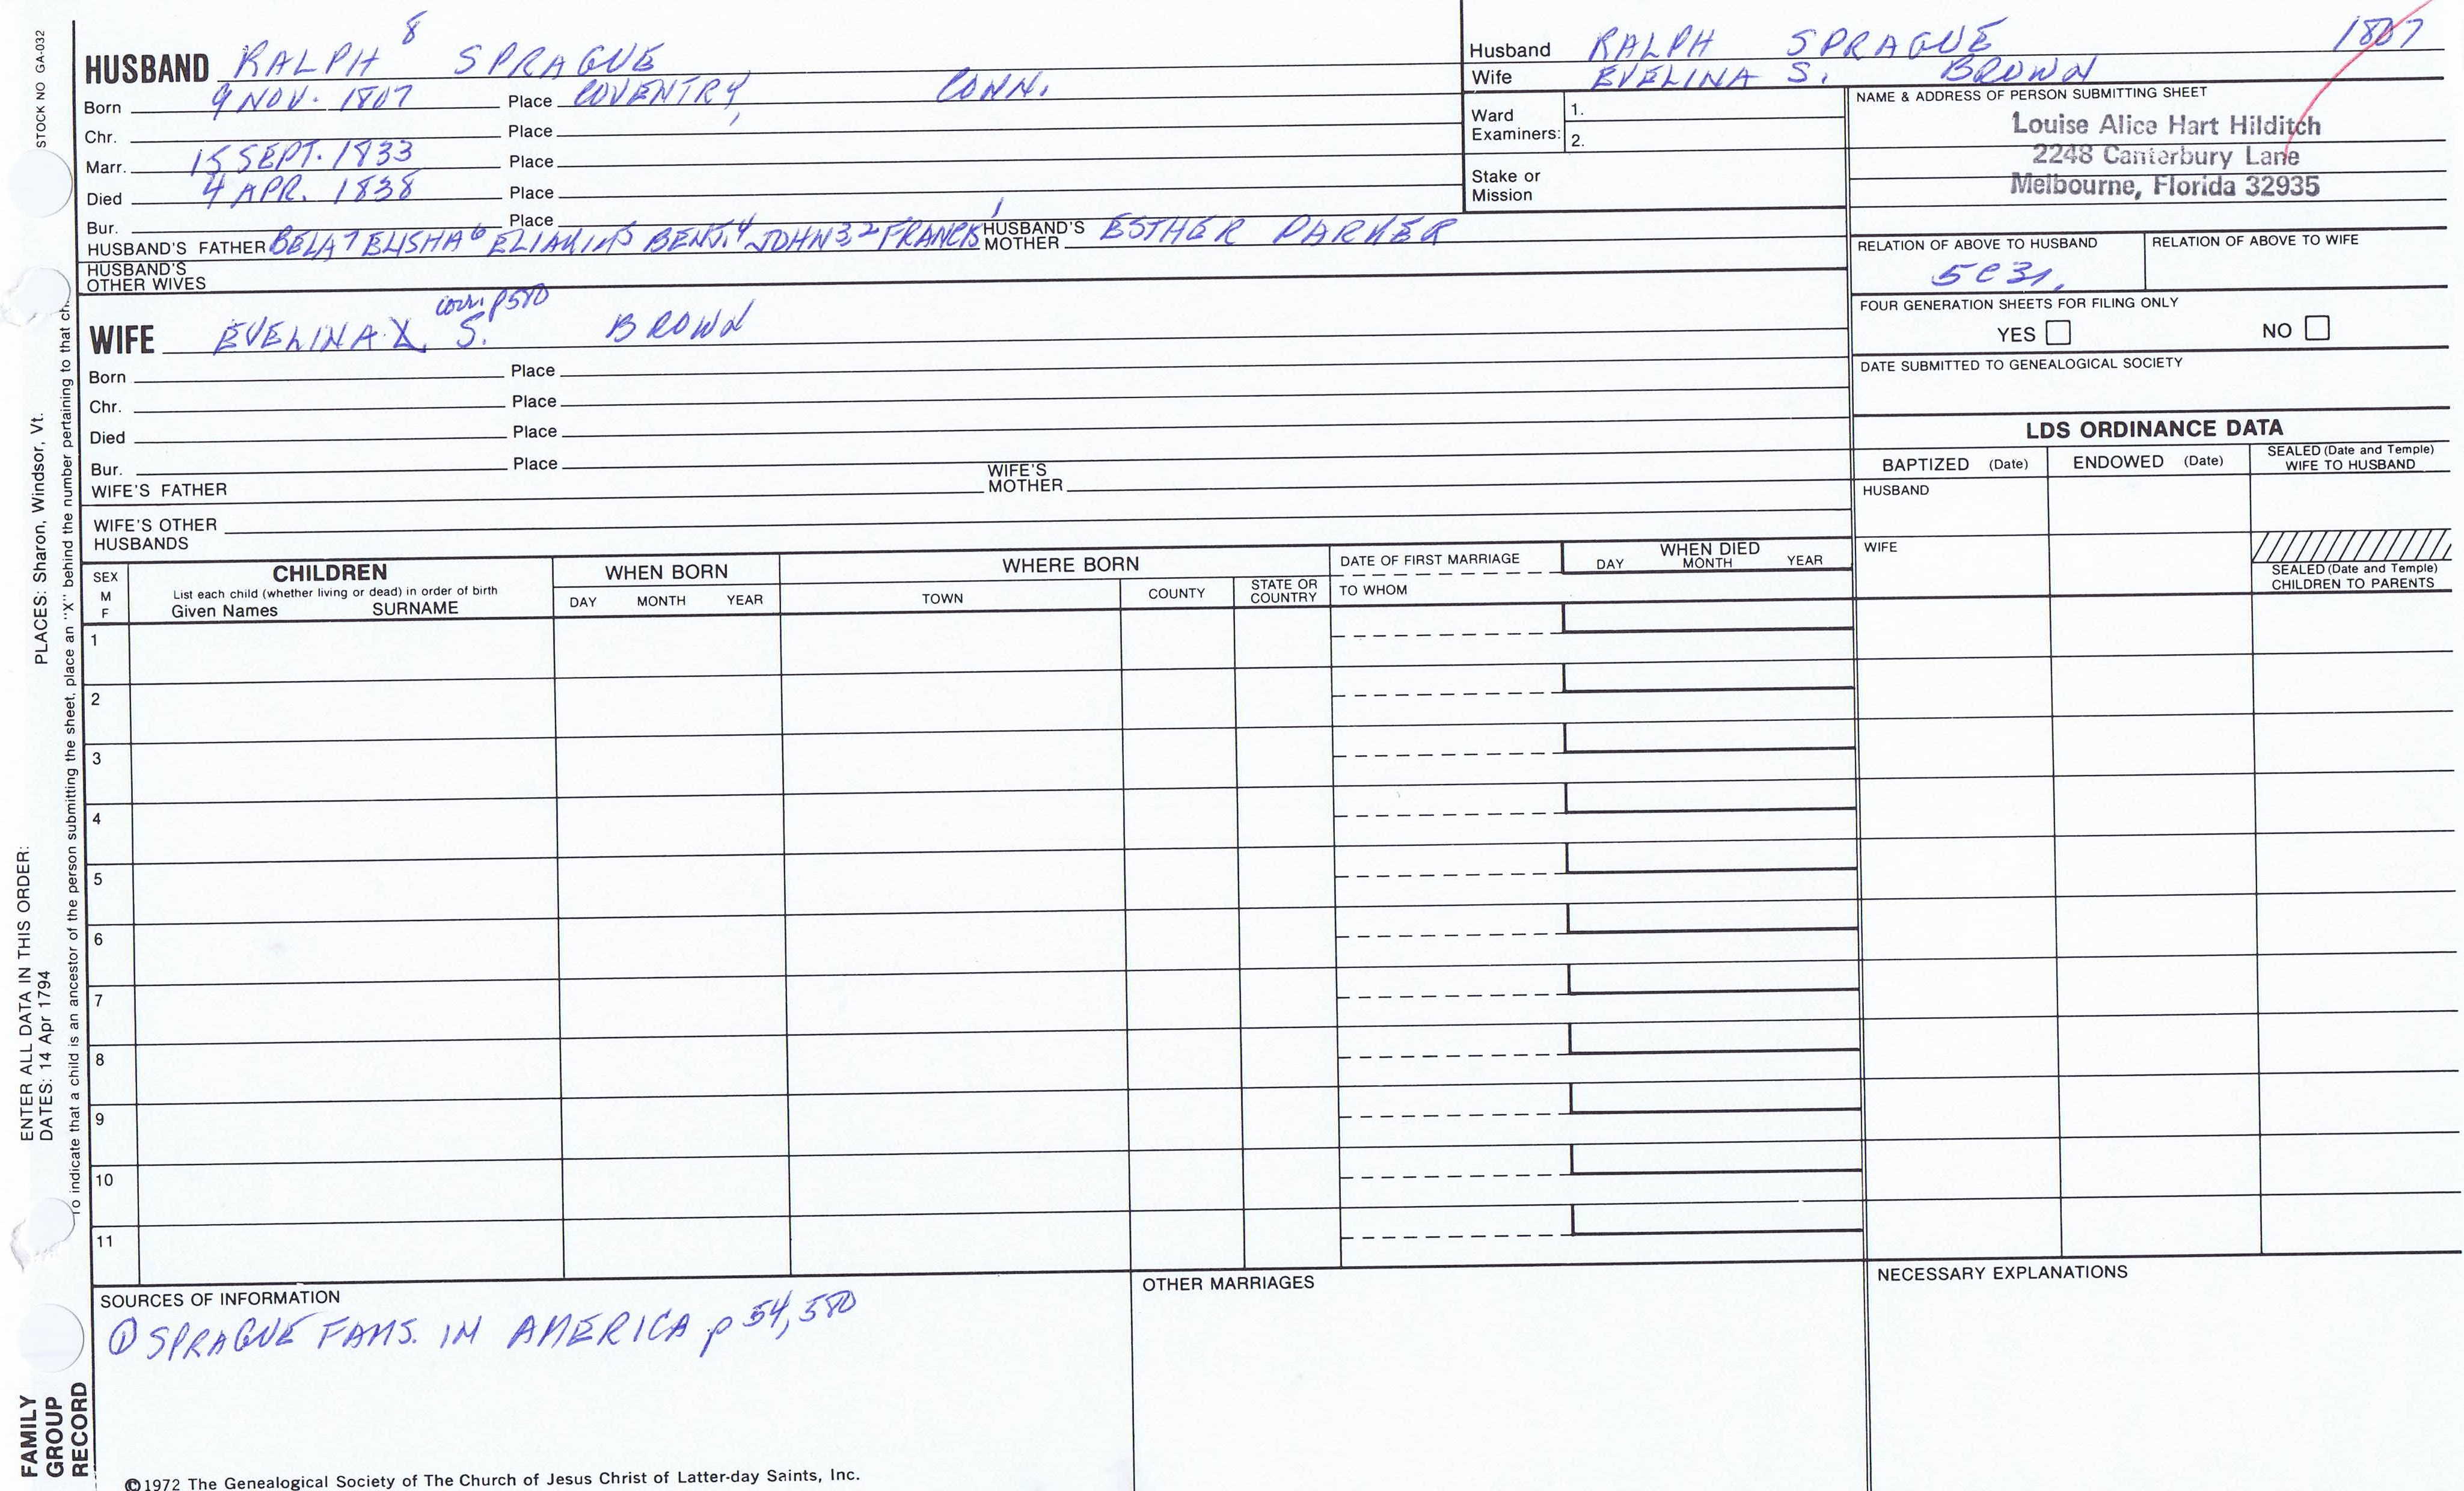 STOCK NO GA-032
HUSBAND RALPH 8 SPRAGUE
Born 9 NOV. 1807 Place COVENTRY, CONN.
Chr. Place
Marr. 15 SEPT. 1833 Place
Died 4 APR. 1838 Place
Bur. Place
HUSBAND'S FATHER BELA7 ELISHA6 ELIAKIM5 BENJ.4 JOHN3,2 FRANCIS1 HUSBAND'S MOTHER ESTHER PARKER
HUSBAND'S OTHER WIVES
Husband RALPH SPRAGUE 1807
Wife EVELINA S. BROWN
Ward Examiners: 1.
2.
Stake or Mission
NAME & ADDRESS OF PERSON SUBMITTING SHEET
Louise Alice Hart Hilditch
2248 Canterbury Lane
Melbourne, Florida 32935
RELATION OF ABOVE TO HUSBAND RELATION OF ABOVE TO WIFE
5C3r.
FOUR GENERATION SHEETS FOR FILING ONLY
YES NO
DATE SUBMITTED TO GENEALOGICAL SOCIETY
corr. p580
WIFE EVELINA S. BROWN
Born Place
Chr. Place
Died Place
Bur. Place
WIFE'S FATHER WIFE'S MOTHER
WIFE'S OTHER HUSBANDS
LDS ORDINANCE DATA
BAPTIZED (Date) ENDOWED (Date) SEALED (Date and Temple) WIFE TO HUSBAND
HUSBAND
WIFE
SEALED (Date and Temple) CHILDREN TO PARENTS
SEX M F
CHILDREN
List each child (whether living or dead) in order of birth
Given Names SURNAME
WHEN BORN
DAY MONTH YEAR
WHERE BORN
TOWN COUNTY STATE OR COUNTRY
DATE OF FIRST MARRIAGE
TO WHOM
WHEN DIED
DAY MONTH YEAR
1
2
3
4
5
6
7
8
9
10
11
SOURCES OF INFORMATION
① SPRAGUE FAMS. IN AMERICA p 54, 580
OTHER MARRIAGES
NECESSARY EXPLANATIONS
©1972 The Genealogical Society of The Church of Jesus Christ of Latter-day Saints, Inc.
FAMILY GROUP RECORD
ENTER ALL DATA IN THIS ORDER:
DATES: 14 Apr 1794 PLACES: Sharon, Windsor, Vt.
To indicate that a child is an ancestor of the person submitting the sheet, place an "X" behind the number pertaining to that